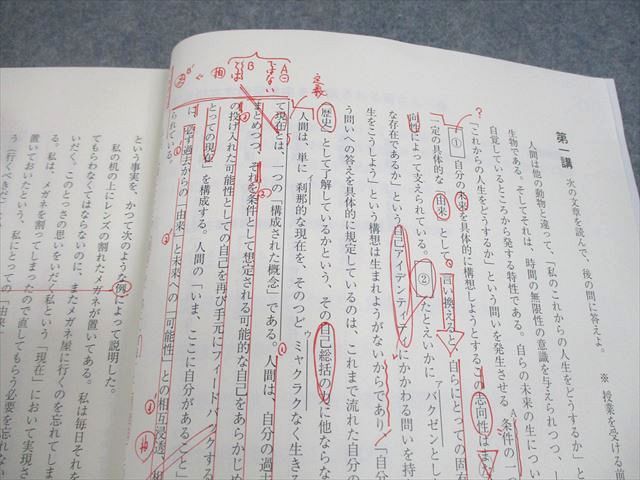 ※ 授業を受ける前
第一講 次の文章を読んで、後の問に答えよ。
人間は他の動物と違って、「私のこれからの人生をどうするか」と
生物である。そしてそれは、時間の無限性の意識を与えられつつ、し
自覚しているところから発する特性である。自らの未来の生につい
「これからの人生をどうするか」という問いを発生させる A条件の一つ
? ① 自分の未来を具体的に構想しようとするこの志向性はまた
一定の具体的な 由来 として 言い換えると 自らにとっての固有
向性によって支えられている。② たとえいかに アバクゼンとし
な存在であるか」という自己アイデンティティにかかわる問いを持
生をこうしよう」という構想は生まれようがないからであり、「自分
う問いへの答えを具体的に規定しているのは、これまで流れた自分の
定義
「歴史」として了解しているかという、その自己総括の力に他ならな
人間は、単に イ刹那的な現在を、そのつど ウミャクラクなく生きる
て現在とは、一つの「構成された概念」である。人間は、自分の過去
まとめつつ、それを条件として想定される可能的な自己をあらかじめ
の投げ入れた可能性としての自己を再び手元にフィードバックする
とっての現在」を構成する。人間の「いま、ここに自分があること」
は、必ず過去からの「由来」と未来への「可能性」との相互浸透、相
られている。
A
ではない
B
という事実を、かつて次のような例によって説明した。
私の机の上にレンズの割れたメガネが置いてある。私は毎日それを
てもらわなくてはならないのに、またメガネ屋に行くのを忘れてしま
いだく。このとっさの思いをいだく私という「現在」において実現さ
る。私は、メガネを割ってしまったので直してもらう必要を忘れない
置いておいたという、私にとっての「由来
う（行くべきだ